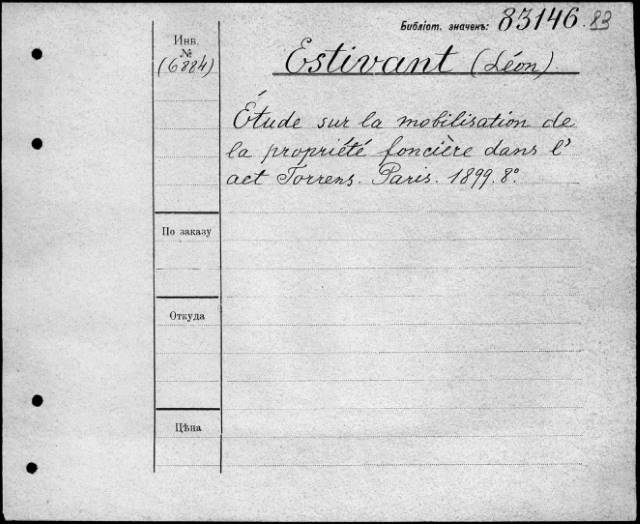 Библіот. значекъ: 83146.83
Инв.
№
(6884)
Estivant (Léon).
Étude sur la mobilisation de
la propriété foncière dans l'
act Torrens. Paris. 1899. 8º
По заказу
Откуда
Цѣна